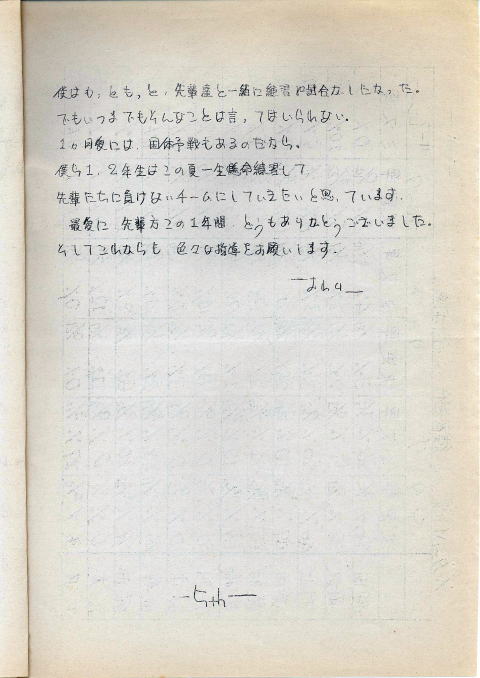 僕はもっともっと、先輩達と一緒に練習や試合がしたかった。
でもいつまでもそんなことは言ってはいられない。
1ヵ月後には、国体予戦もあるのだから。
僕ら1、2年生はこの夏一生懸命練習して
先輩たちに負けないチームにしていきたいと思っています。
最後に、先輩方この1年間、どうもありがとうございました。
そしてこれからも、色々な指導をお願いします。
おわり